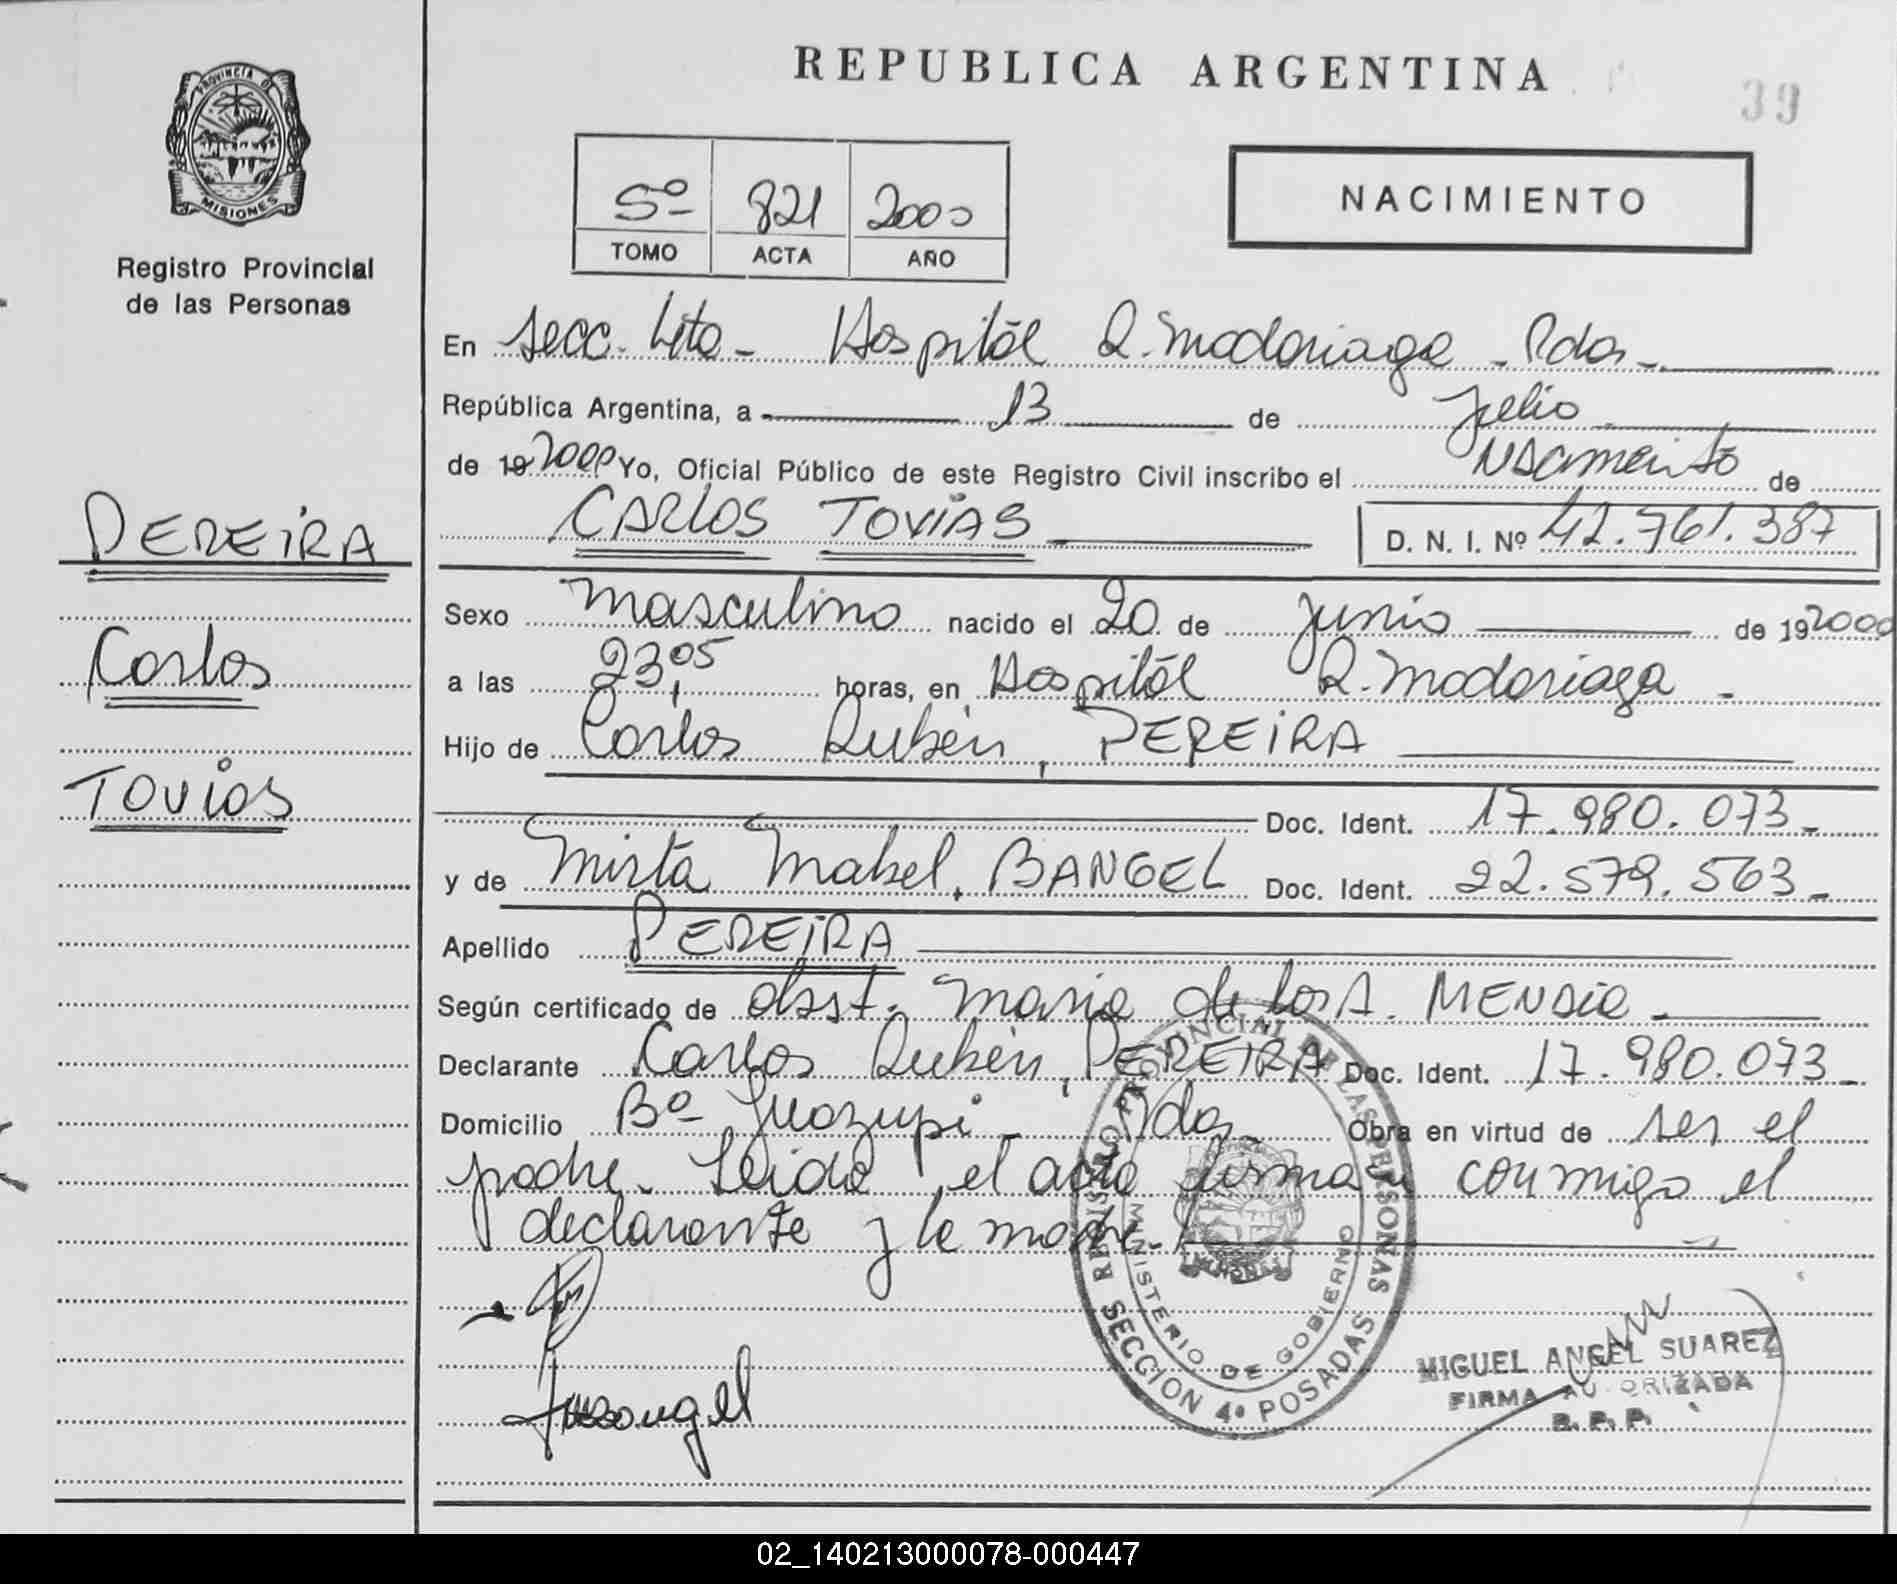 REPUBLICA ARGENTINA
39
PROVINCIA D
MISIONES
Registro Provincial
de las Personas
5º 821 2000
TOMO ACTA AÑO
NACIMIENTO
En Secc. 4ta - Hospital R. Madariaga - Pdas -
República Argentina, a 13 de Julio
de 19 2000 Yo, Oficial Público de este Registro Civil inscribo el Nacimiento de
CARLOS TOVIAS
D. N. I. Nº 42.761.387
PEREIRA
Carlos
Tovias
Sexo masculino nacido el 20 de junio de 19 2000
a las 23,05 horas, en Hospital R. Madariaga -
Hijo de Carlos Rubén, PEREIRA
Doc. Ident. 17.980.073 -
y de Mirta Mabel, BANGEL Doc. Ident. 22.579.563 -
Apellido PEREIRA
Según certificado de obst. Maria de los A. MENDIE -
Declarante Carlos Rubén, PEREIRA Doc. Ident. 17.980.073 -
Domicilio Bº Yuazupi - Pdas - Obra en virtud de ser el
padre. Leida el acta firman conmigo el
declarante y la madre.
REGISTRO PROVINCIAL DE LAS PERSONAS
MINISTERIO DE GOBIERNO
MISIONES
SECCION 4ª POSADAS
MIGUEL ANGEL SUAREZ
FIRMA AUTORIZADA
R. P. P.
02_140213000078-000447